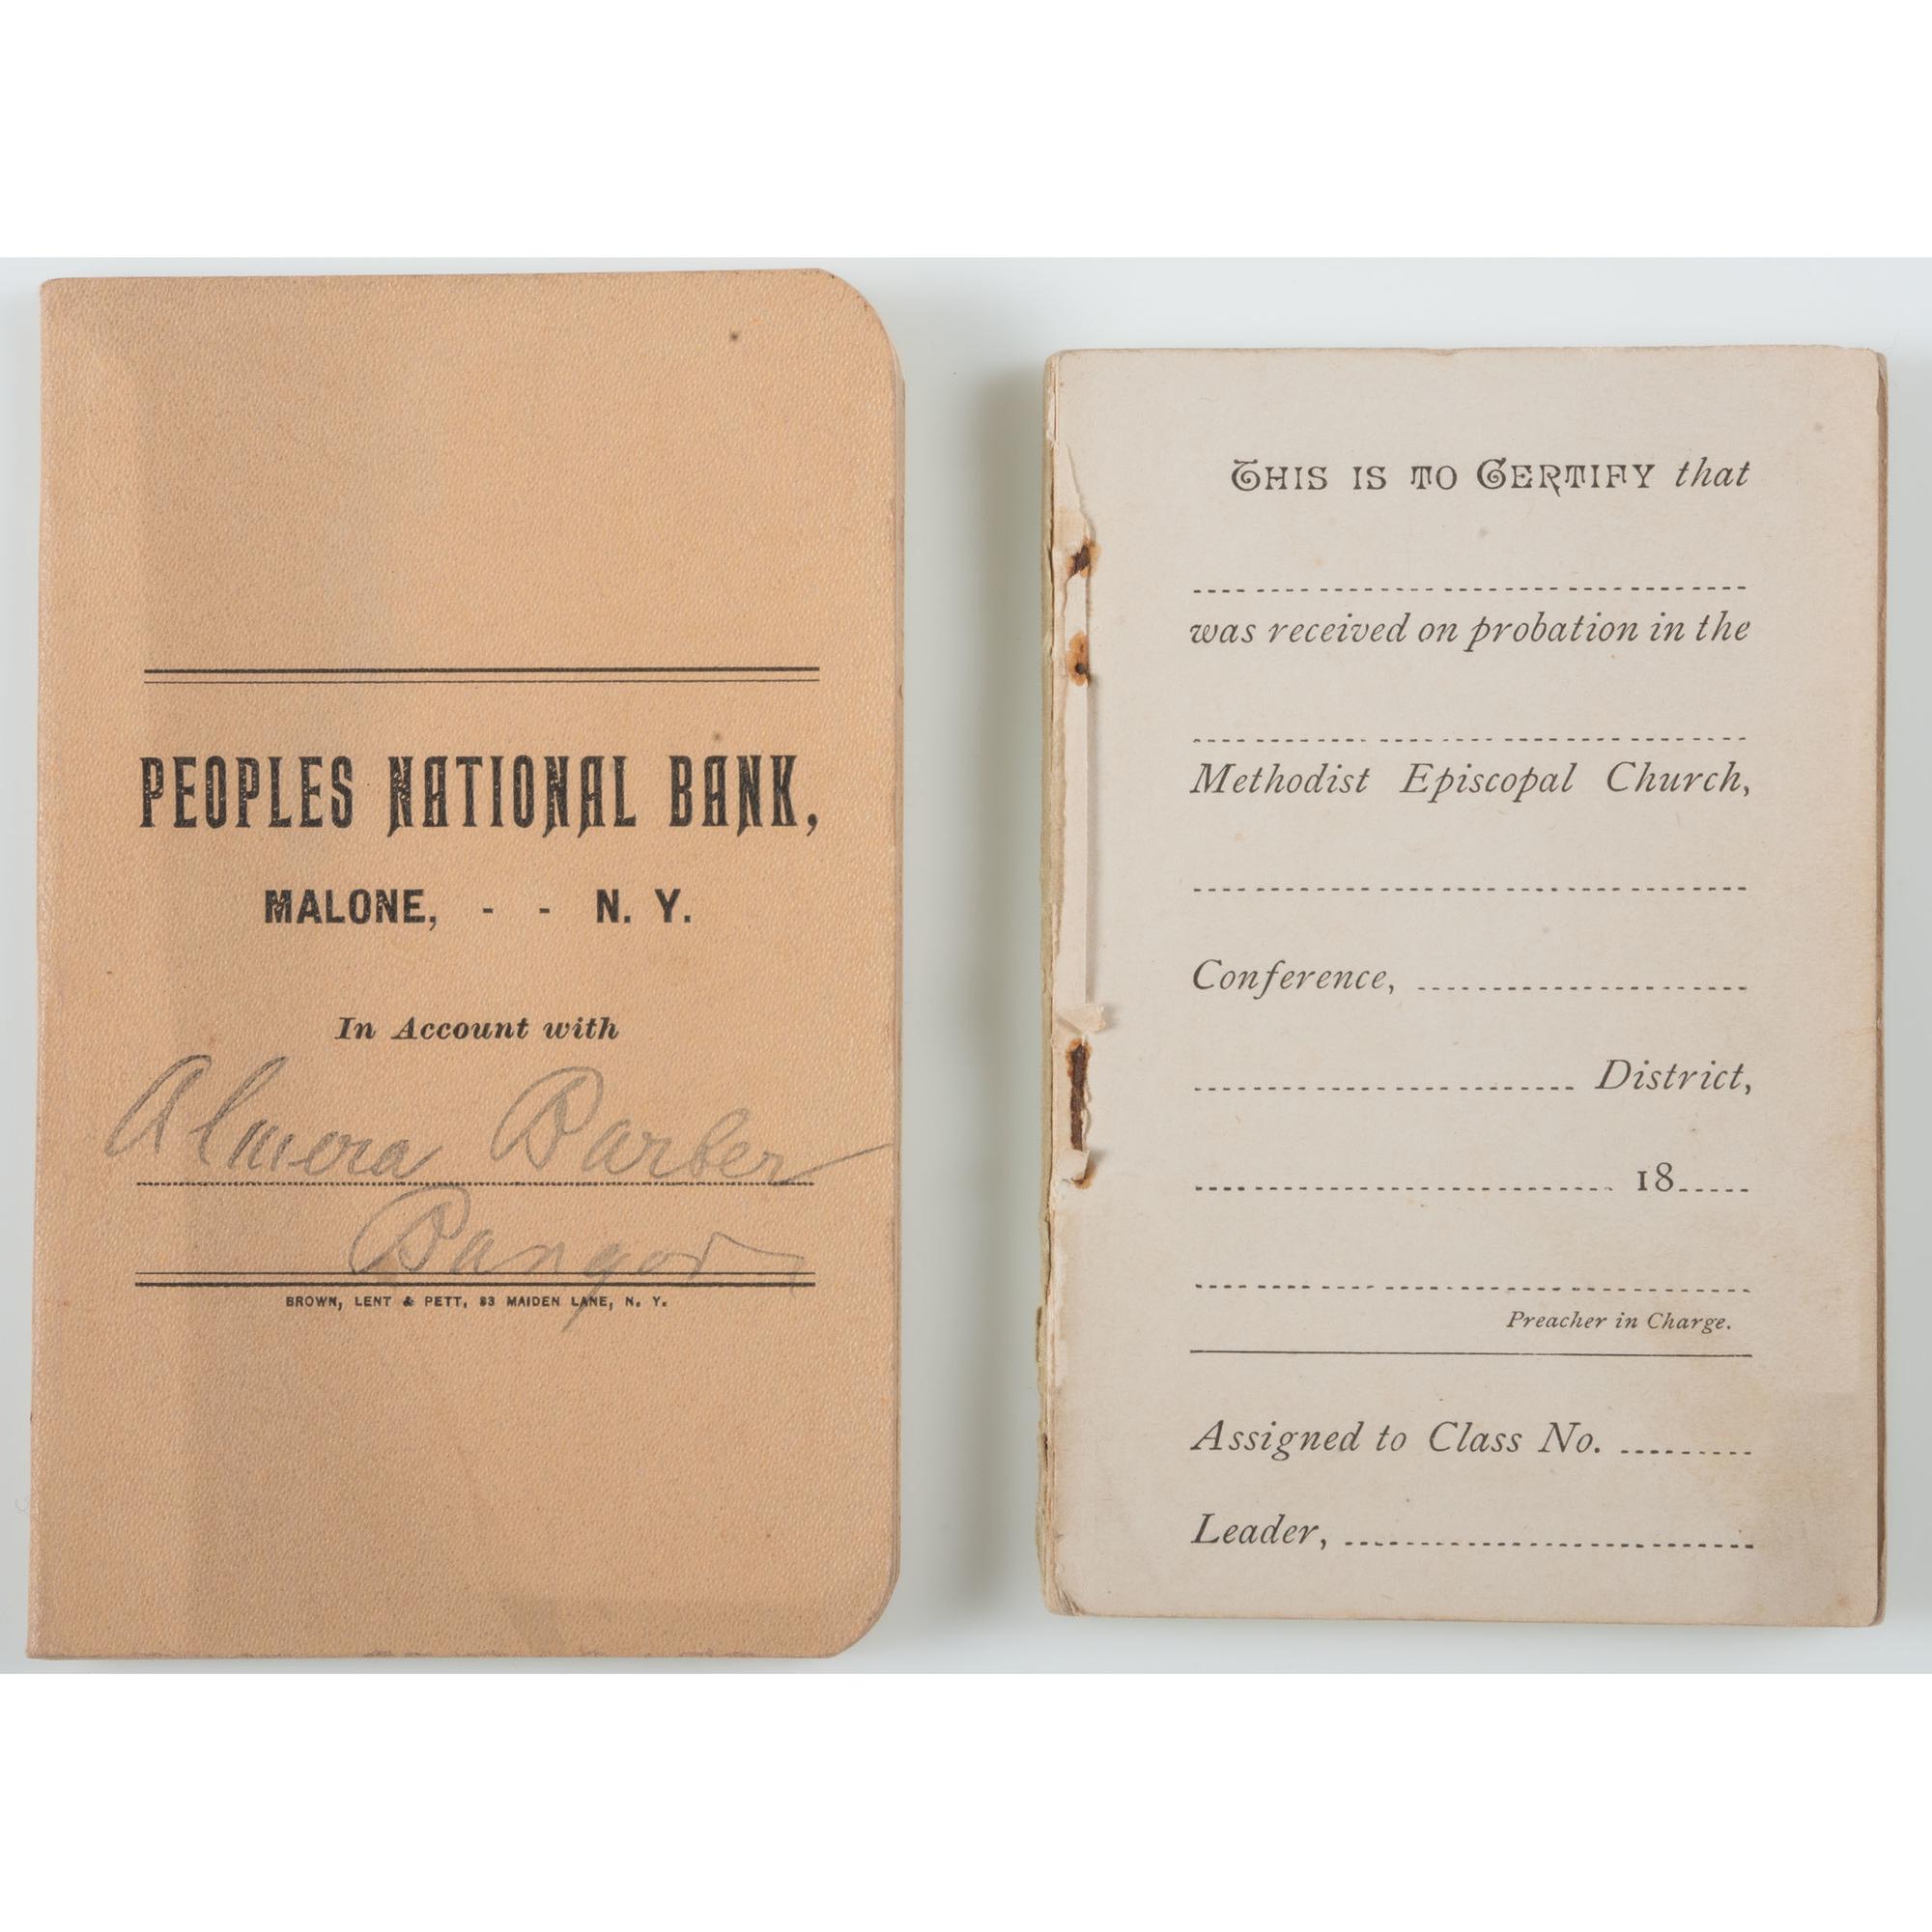 PEOPLES NATIONAL BANK,
MALONE, - - N. Y.
In Account with
Almera Barber
Bangor
BROWN, LENT & PETT, 83 MAIDEN LANE, N. Y.
THIS IS TO CERTIFY that
was received on probation in the
Methodist Episcopal Church,
Conference,
District,
18
Preacher in Charge.
Assigned to Class No.
Leader,